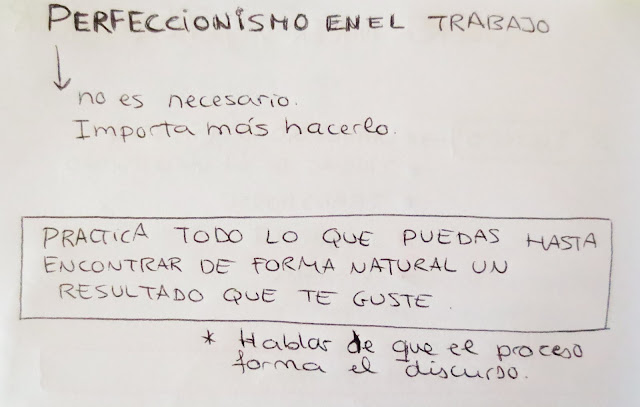 PERFECCIONISMO EN EL TRABAJO
no es necesario.
Importa más hacerlo.
PRACTICA TODO LO QUE PUEDAS HASTA
ENCONTRAR DE FORMA NATURAL UN
RESULTADO QUE TE GUSTE.
* Hablar de que el proceso
forma el discurso.